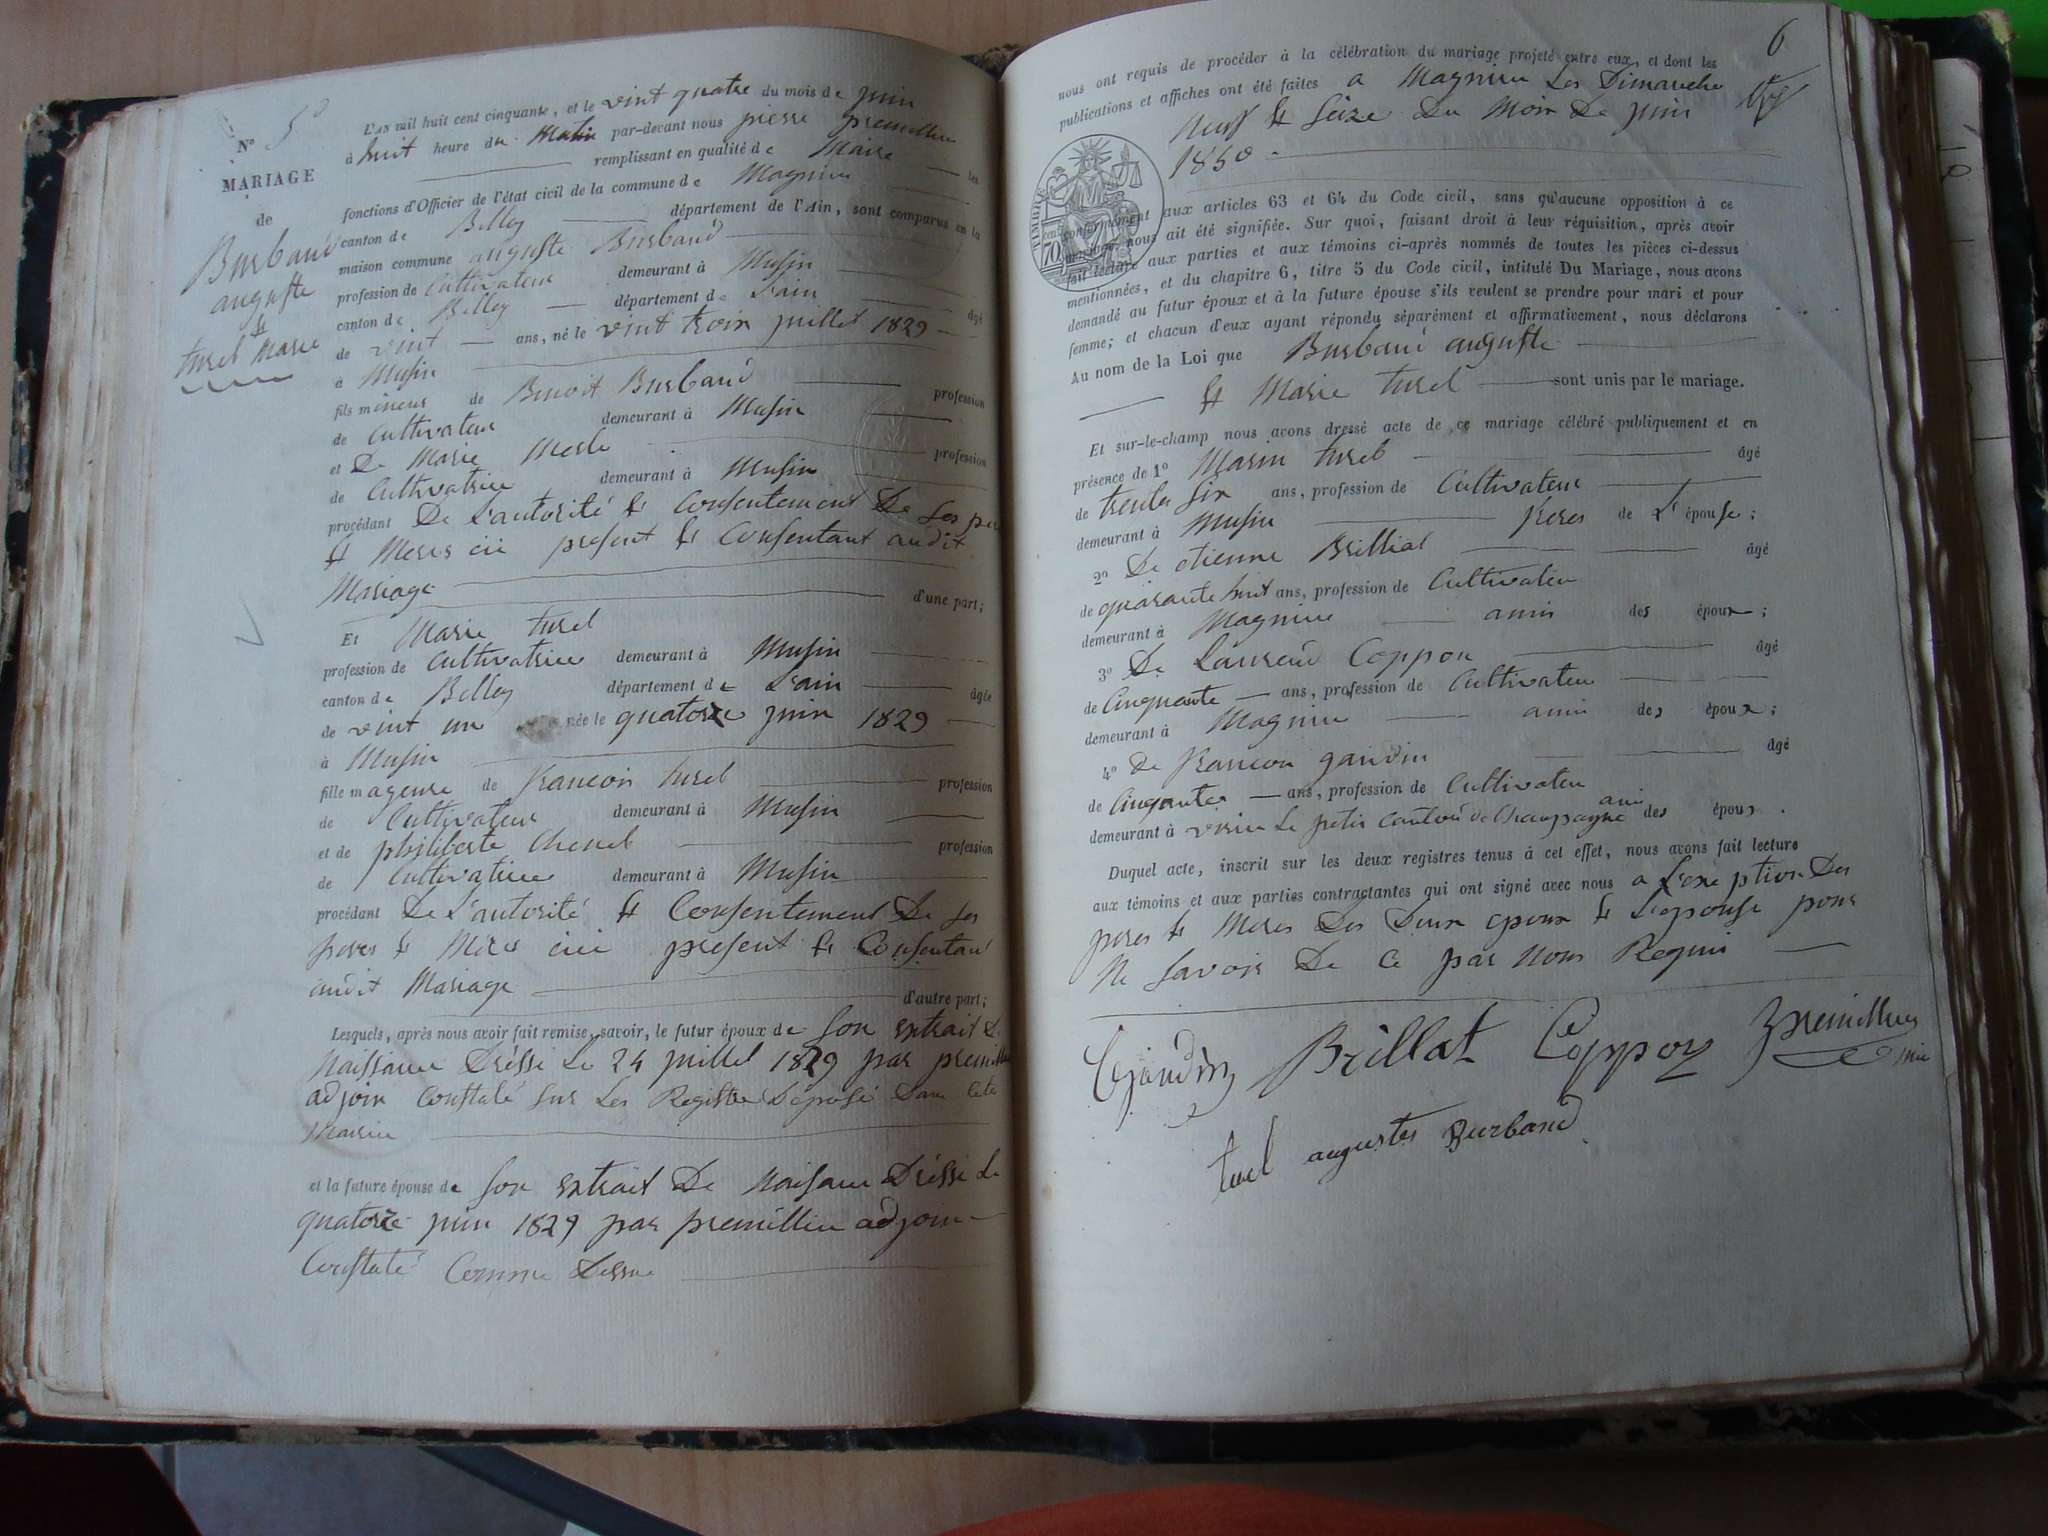 N° 5
MARIAGE
de
Burbaud
auguste
et
turel Marie
L'an mil huit cent cinquante, et le vint quatre du mois de juin
à huit heure du Matin par-devant nous pierre premillieu
remplissant en qualité de Maire les
fonctions d'Officier de l'état civil de la commune de Magnieu
canton de Belley département de l'Ain, sont comparus en la
maison commune auguste Burbaud
profession de Cultivateur demeurant à Musin
canton de Belley département de L'ain âgé
de vint ans, né le vint trois juillet 1829
à Musin
fils mineur de Benoit Burbaud profession
de Cultivateur demeurant à Musin
et De Marie Merle profession
de Cultivatrice demeurant à Musin
procédant De L'autorité et Consentement De ses per
et Meres ici present et Consentant audit
Mariage d'une part;
Et Marie turel
profession de Cultivatrice demeurant à Musin
canton de Belley département de L'ain âgée
de vint un née le quatorze juin 1829
à Musin
fille mageure de francois turel profession
de Cultivateur demeurant à Musin
et de philiberte Chenel profession
de Cultivatrice demeurant à Musin
procédant De L'autorité et Consentement De ses
peres et Meres ici present et Consentant
audit Mariage d'autre part;
Lesquels, après nous avoir fait remise, savoir, le futur époux de son extrait de
Naissance Dréssé Le 24 juillet 1829 par premillieu
adjoin Constaté sur Les Registre Déposé Dans cete
Mairie
et la future épouse de son extrait De Naissance Dréssé Le
quatorze juin 1829 par premillieu adjoin
Constaté Comme Dessus
6
nous ont requis de procéder à la célébration du mariage projeté entre eux, et dont les
publications et affiches ont été faites a Magnieu Les Dimanche
Neuf et seize Du Mois De juin
1850
conformément aux articles 63 et 64 du Code civil, sans qu'aucune opposition à ce
mariage nous ait été signifiée. Sur quoi, faisant droit à leur réquisition, après avoir
fait lecture aux parties et aux témoins ci-après nommés de toutes les pièces ci-dessus
mentionnées, et du chapitre 6, titre 5 du Code civil, intitulé Du Mariage, nous avons
demandé au futur époux et à la future épouse s'ils veulent se prendre pour mari et pour
femme; et chacun d'eux ayant répondu séparément et affirmativement, nous déclarons
Au nom de la Loi que Burbaud auguste
et Marie turel sont unis par le mariage.
Et sur-le-champ nous avons dressé acte de ce mariage célébré publiquement et en
présence de 1° Marin turel âgé
de trente six ans, profession de Cultivateur
demeurant à Musin freres de L'épouse;
2° De etienne Brilliat âgé
de quarante huit ans, profession de Cultivateu
demeurant à Magnieu amis des époux;
3° De Laurend Coppou âgé
de Cinquante ans, profession de Cultivateu
demeurant à Magnieu amis des époux;
4° De francoi gaudin âgé
de Cinqantes ans, profession de Cultivateu
demeurant à virieu Le petit Canton de Champagne ami des époux.
Duquel acte, inscrit sur les deux registres tenus à cet effet, nous avons fait lecture
aux témoins et aux parties contractantes qui ont signé avec nous a L'exception Des
peres et Meres Des Deux epoux et L'epouse pour
Ne savoir De Ce par Nous Requis
Gjaudin Brillat Coppoz premillieu
mre
turel augustes Burband